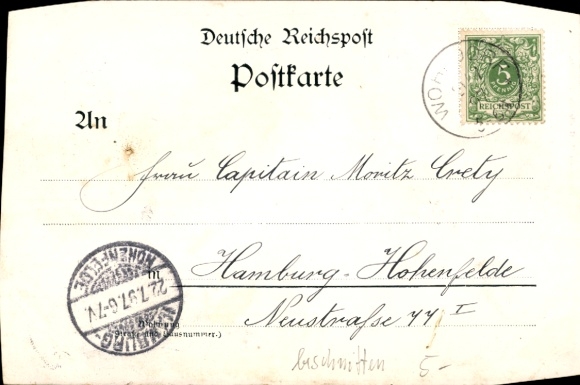 Deutsche Reichspost
Postkarte
5
PFENNIG
REICHSPOST
An
Frau Capitain Moritz Crety
in
Hamburg-Hohenfelde
Neustraße 44 I
Wohnung
(Straße und Hausnummer.)
HAMBURG-
HOHENFELDE
22.7.97.6-7V
beschnitten 5-